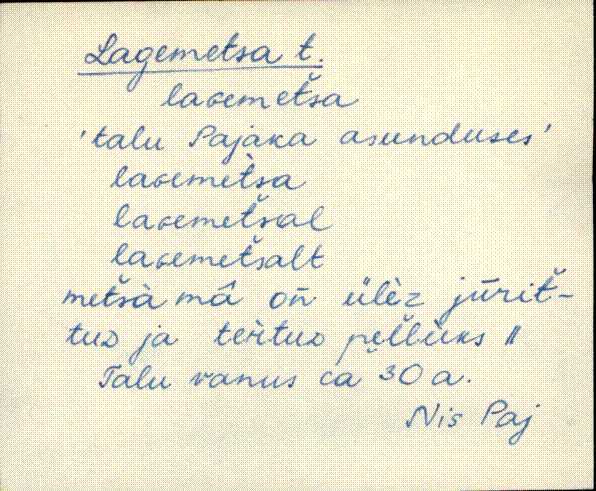 Lagemetsa t.
laɢemet̆sa
'talu Pajaka asunduses'
laɢemet̀sa
laɢemet̆sal
laɢemet̆salt
met̆sà mâ on̄ ülèz jūrit̆-
tuᴅ ja tehtuᴅ pel̆lùks ॥
Talu vanus ca 30 a.
Nis Paj